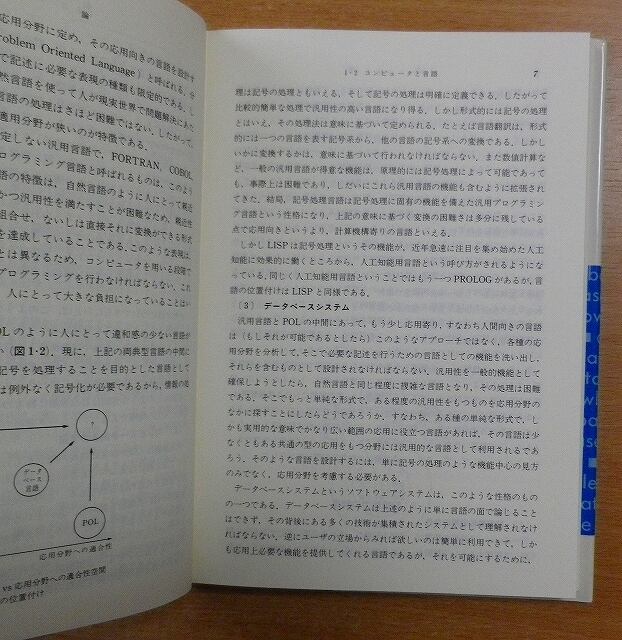 論
応用分野に定め，その応用向きの言語を設計す
roblem Oriented Language）と呼ばれる．分
で記述に必要な表現の種類も限定的である．し
然言語を使って人が現実世界で問題解決にあた
言語の処理はさほど困難ではない．したがって，
適用分野が狭いのが特徴である．
定しない汎用言語で，FORTRAN，COBOL
ログラミング言語と呼ばれるものは，このよう
語の特徴は，自然言語のように人にとって親近
かつ汎用性を満たすことが困難なため，親近性
組合せ，ないしは直接それに変換ができる形式
を達成していることである．このような表現は，
とは異なるため，コンピュータを用いる段階で
プログラミングを行わなければならない．これ
人にとって大きな負担になっていることはい
OLのように人にとって違和感の少ない言語が
い（図1・2）．現に，上記の両典型言語の中間に
記号を処理することを目的とした言語として
は例外なく記号化が必要であるから，情報の処
？
データ
ベース
言語
POL
応用分野への適合性
vs 応用分野への適合性空間
の位置付け
1・2 コンピュータと言語
7
理は記号の処理ともいえる．そして記号の処理は明確に定義できる．したがって
比較的簡単な処理で汎用性の高い言語になり得る．しかし形式的には記号の処理
とはいえ，その処理法は意味に基づいて定められる．たとえば言語翻訳は，形式
的には一つの言語を表す記号系から，他の言語の記号系への変換である．しかし
いかに変換するかは，意味に基づいて行われなければならない．また数値計算な
ど，一般の汎用言語が得意な機能は，原理的には記号処理によって可能であって
も，事際上は困難であり，しだいにこれら汎用言語の機能も含むように拡張され
てきた．結局，記号処理言語は記号処理に固有の機能を備えた汎用プログラミン
グ言語という性格になり，上記の意味に基づく変換の困難さは多分に残している
点で応用向きというより，計算機寄りの言語といえる．
しかしLISPは記号処理というその機能が，近年急速に注目を集め始めた人工
知能に効果的に働くところから，人工知能用言語という呼び方がされるようにな
っている．同じく人工知能用言語ということではもう一つPROLOGがあるが，言
語の位置付けはLISPと同様である．
〔3〕 データベースシステム
汎用言語とPOLの中間にあって，もう少し応用寄り，すなわち人間向きの言語
は（もしそれが可能であるとしたら）このようなアプローチではなく，各種の応
用分野を分析して，そこで必要な記述を行うための言語としての機能を洗い出し，
それらを含むものとして設計されなければならない．汎用性を一般的機能として
確保しようとしたら，自然言語と同じ程度に複雑な言語となり，その処理は困難
である．そこでもっと単純な形式で，ある程度の汎用性をもつものを応用分野の
なかに探すことにしたらどうであろうか．すなわち，ある種の単純な形式で，し
かも実用的な意味でかなり広い範囲の応用に役立つ言語があれば，その言語は少
なくともある共通の型の応用をもつ分野には汎用的な言語として利用されるであ
ろう．そのような言語を設計するには，単に記号の処理のような機能中心の見方
のみでなく，応用分野を考慮する必要がある．
データベースシステムというソフトウェアシステムは，このような性格のもの
の一つである．データベースシステムは上述のように単に言語の面で論じること
はできず，その背後にある多くの技術が集積されたシステムとして理解されなけ
ればならない．逆にユーザの立場からみれば欲しいのは簡単に利用できて，しか
も応用上必要な機能を提供してくれる言語であるが，それを可能にするために，